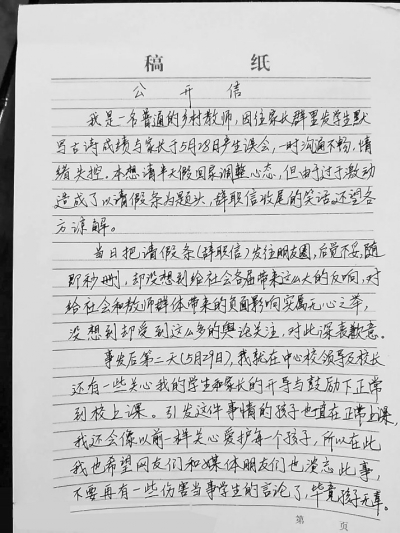 稿 纸
公开信
我是一名普通的乡村教师，因往家长群里发学生默
写古诗成绩与家长于5月28日产生误会，一时沟通不畅，情
绪失控。本想请半天假回家调整心态，但由于过于激动
造成了以请假条为题头，辞职信收尾的笑话。还望各
方谅解。
当日把请假条(辞职信)发往朋友圈，后觉不妥，随
即秒删，却没想到给社会各届带来这么大的反响，对
给社会和教师群体带来的负面影响实属无心之举，
没想到却受到这么多的舆论关注，对此深表歉意。
事发后第二天(5月29日)，我就在中心校领导及校长
还有一些关心我的学生和家长的开导与鼓励下正常
到校上课。引发这件事情的孩子也直在正常上课，
我还会像以前一样关心爱护每个孩子，所以在此
我也希望网友们和媒体朋友们也淡忘此事，
不要再有一些伤害当事学生的言论了，毕竟孩子无辜。
第 页